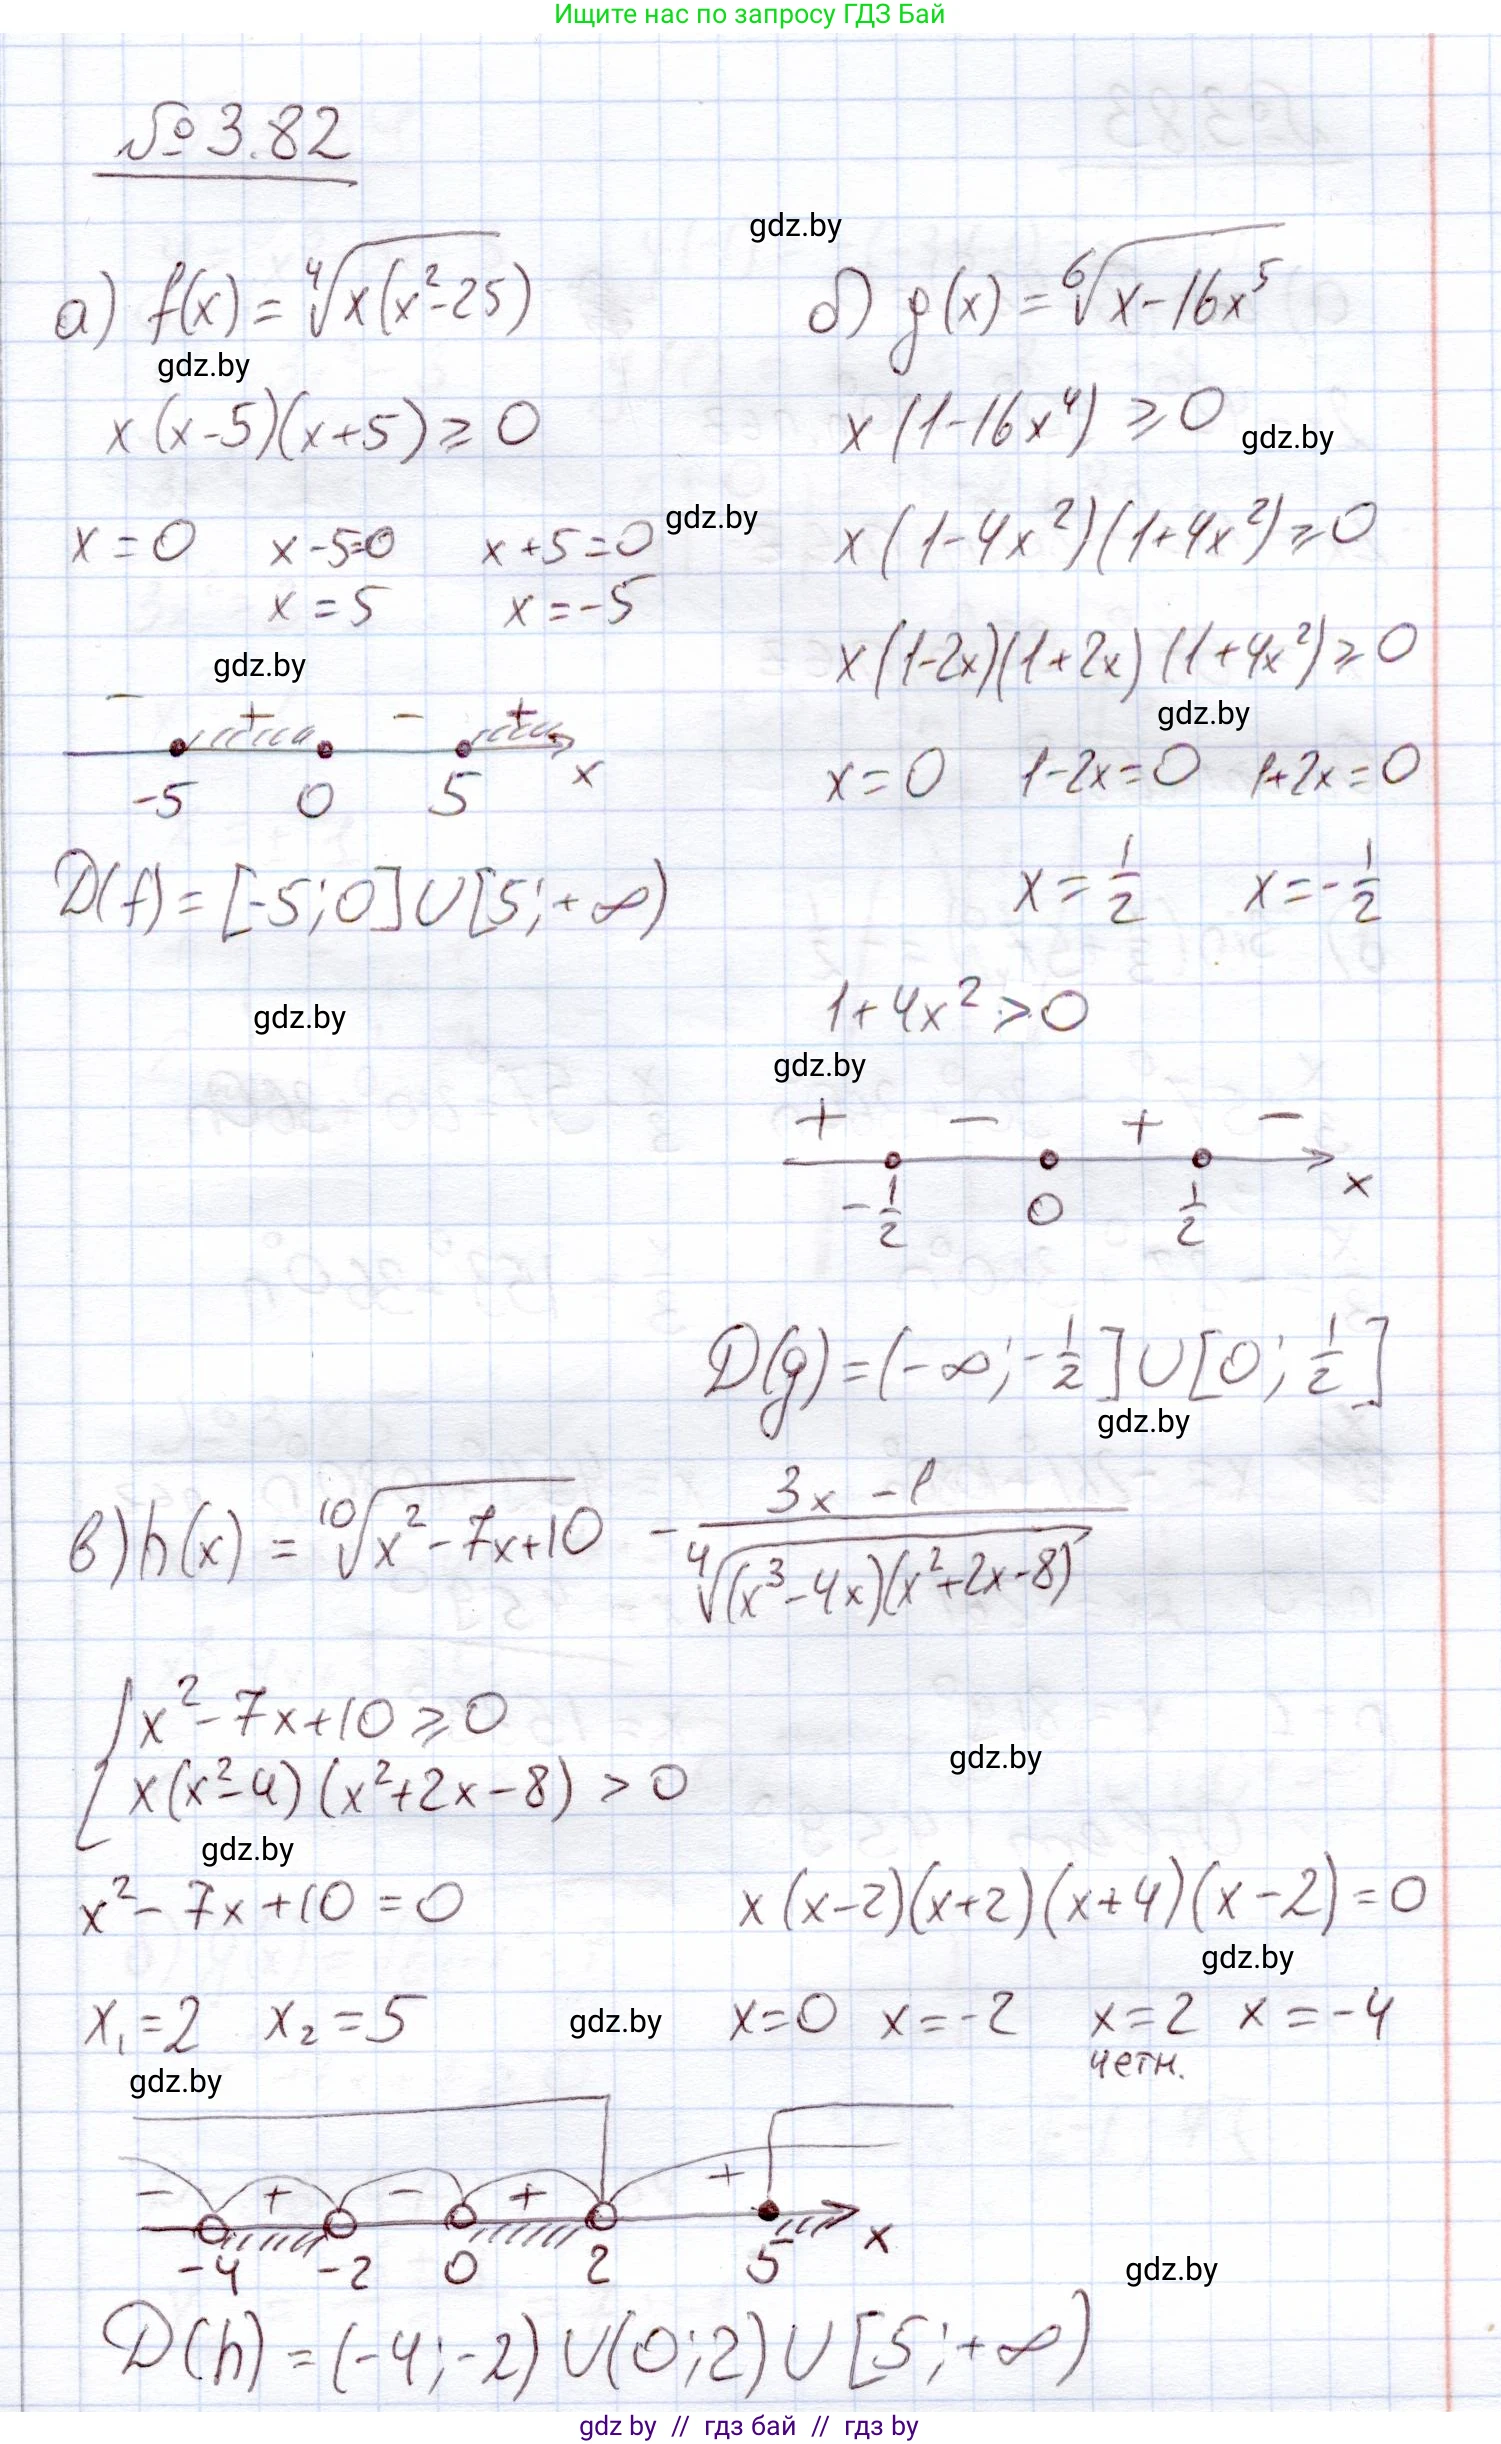 Ищите нас по запросу ГДЗ Бай
№ 3.82
gdz.by
а) f(x) = ⁴√x(x²-25)
gdz.by
x(x-5)(x+5) ≥ 0
x = 0   x-5=0   x+5=0
gdz.by
x = 5   x = -5
gdz.by
- + - +
-5 0 5 x
D(f) = [-5;0] U [5;+∞)
gdz.by
б) g(x) = ⁶√x-16x⁵
x(1-16x⁴) ≥ 0
gdz.by
x(1-4x²)(1+4x²) ≥ 0
x(1-2x)(1+2x)(1+4x²) ≥ 0
gdz.by
x = 0   1-2x=0   1+2x=0
x = 1/2   x = -1/2
1+4x² > 0
gdz.by
+ - + -
-1/2 0 1/2 x
D(g) = (-∞; -1/2] U [0; 1/2]
gdz.by
в) h(x) = ¹⁰√x²-7x+10 - 3x-1 / ⁴√(x³-4x)(x²+2x-8)
{ x²-7x+10 ≥ 0
x(x²-4)(x²+2x-8) > 0
gdz.by
gdz.by
x²-7x+10=0   x(x-2)(x+2)(x+4)(x-2)=0
gdz.by
x₁=2   x₂=5
gdz.by
x=0   x=-2   x=2   x=-4
четн.
gdz.by
- + - + +
-4 -2 0 2 5 x
gdz.by
D(h) = (-4;-2) U (0;2) U [5;+∞)
gdz by // гдз бай // гдз by